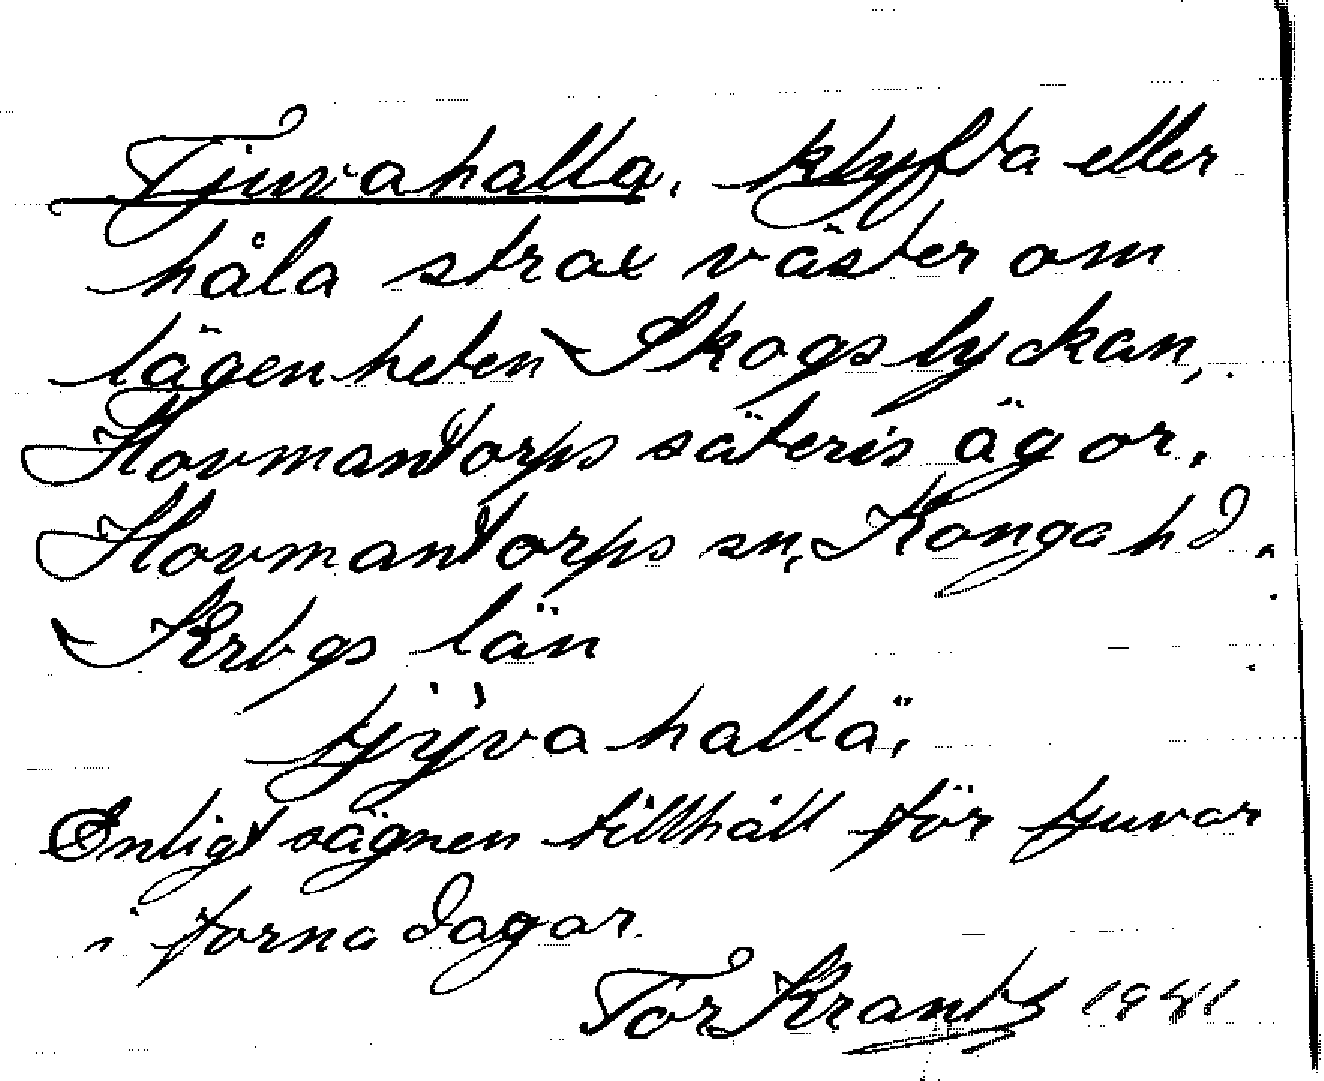 Tjuvahalla, klyfta eller
håla strax väster om
lägenheten Skogslyckan,
Hovmantorps säteris ägor,
Hovmantorps sn, Konga hd.
Krbgs län
tjÿvahallä,
Enligt sägnen tillhåll för tjuvar
i forna dagar.
Tor Krantz 1941